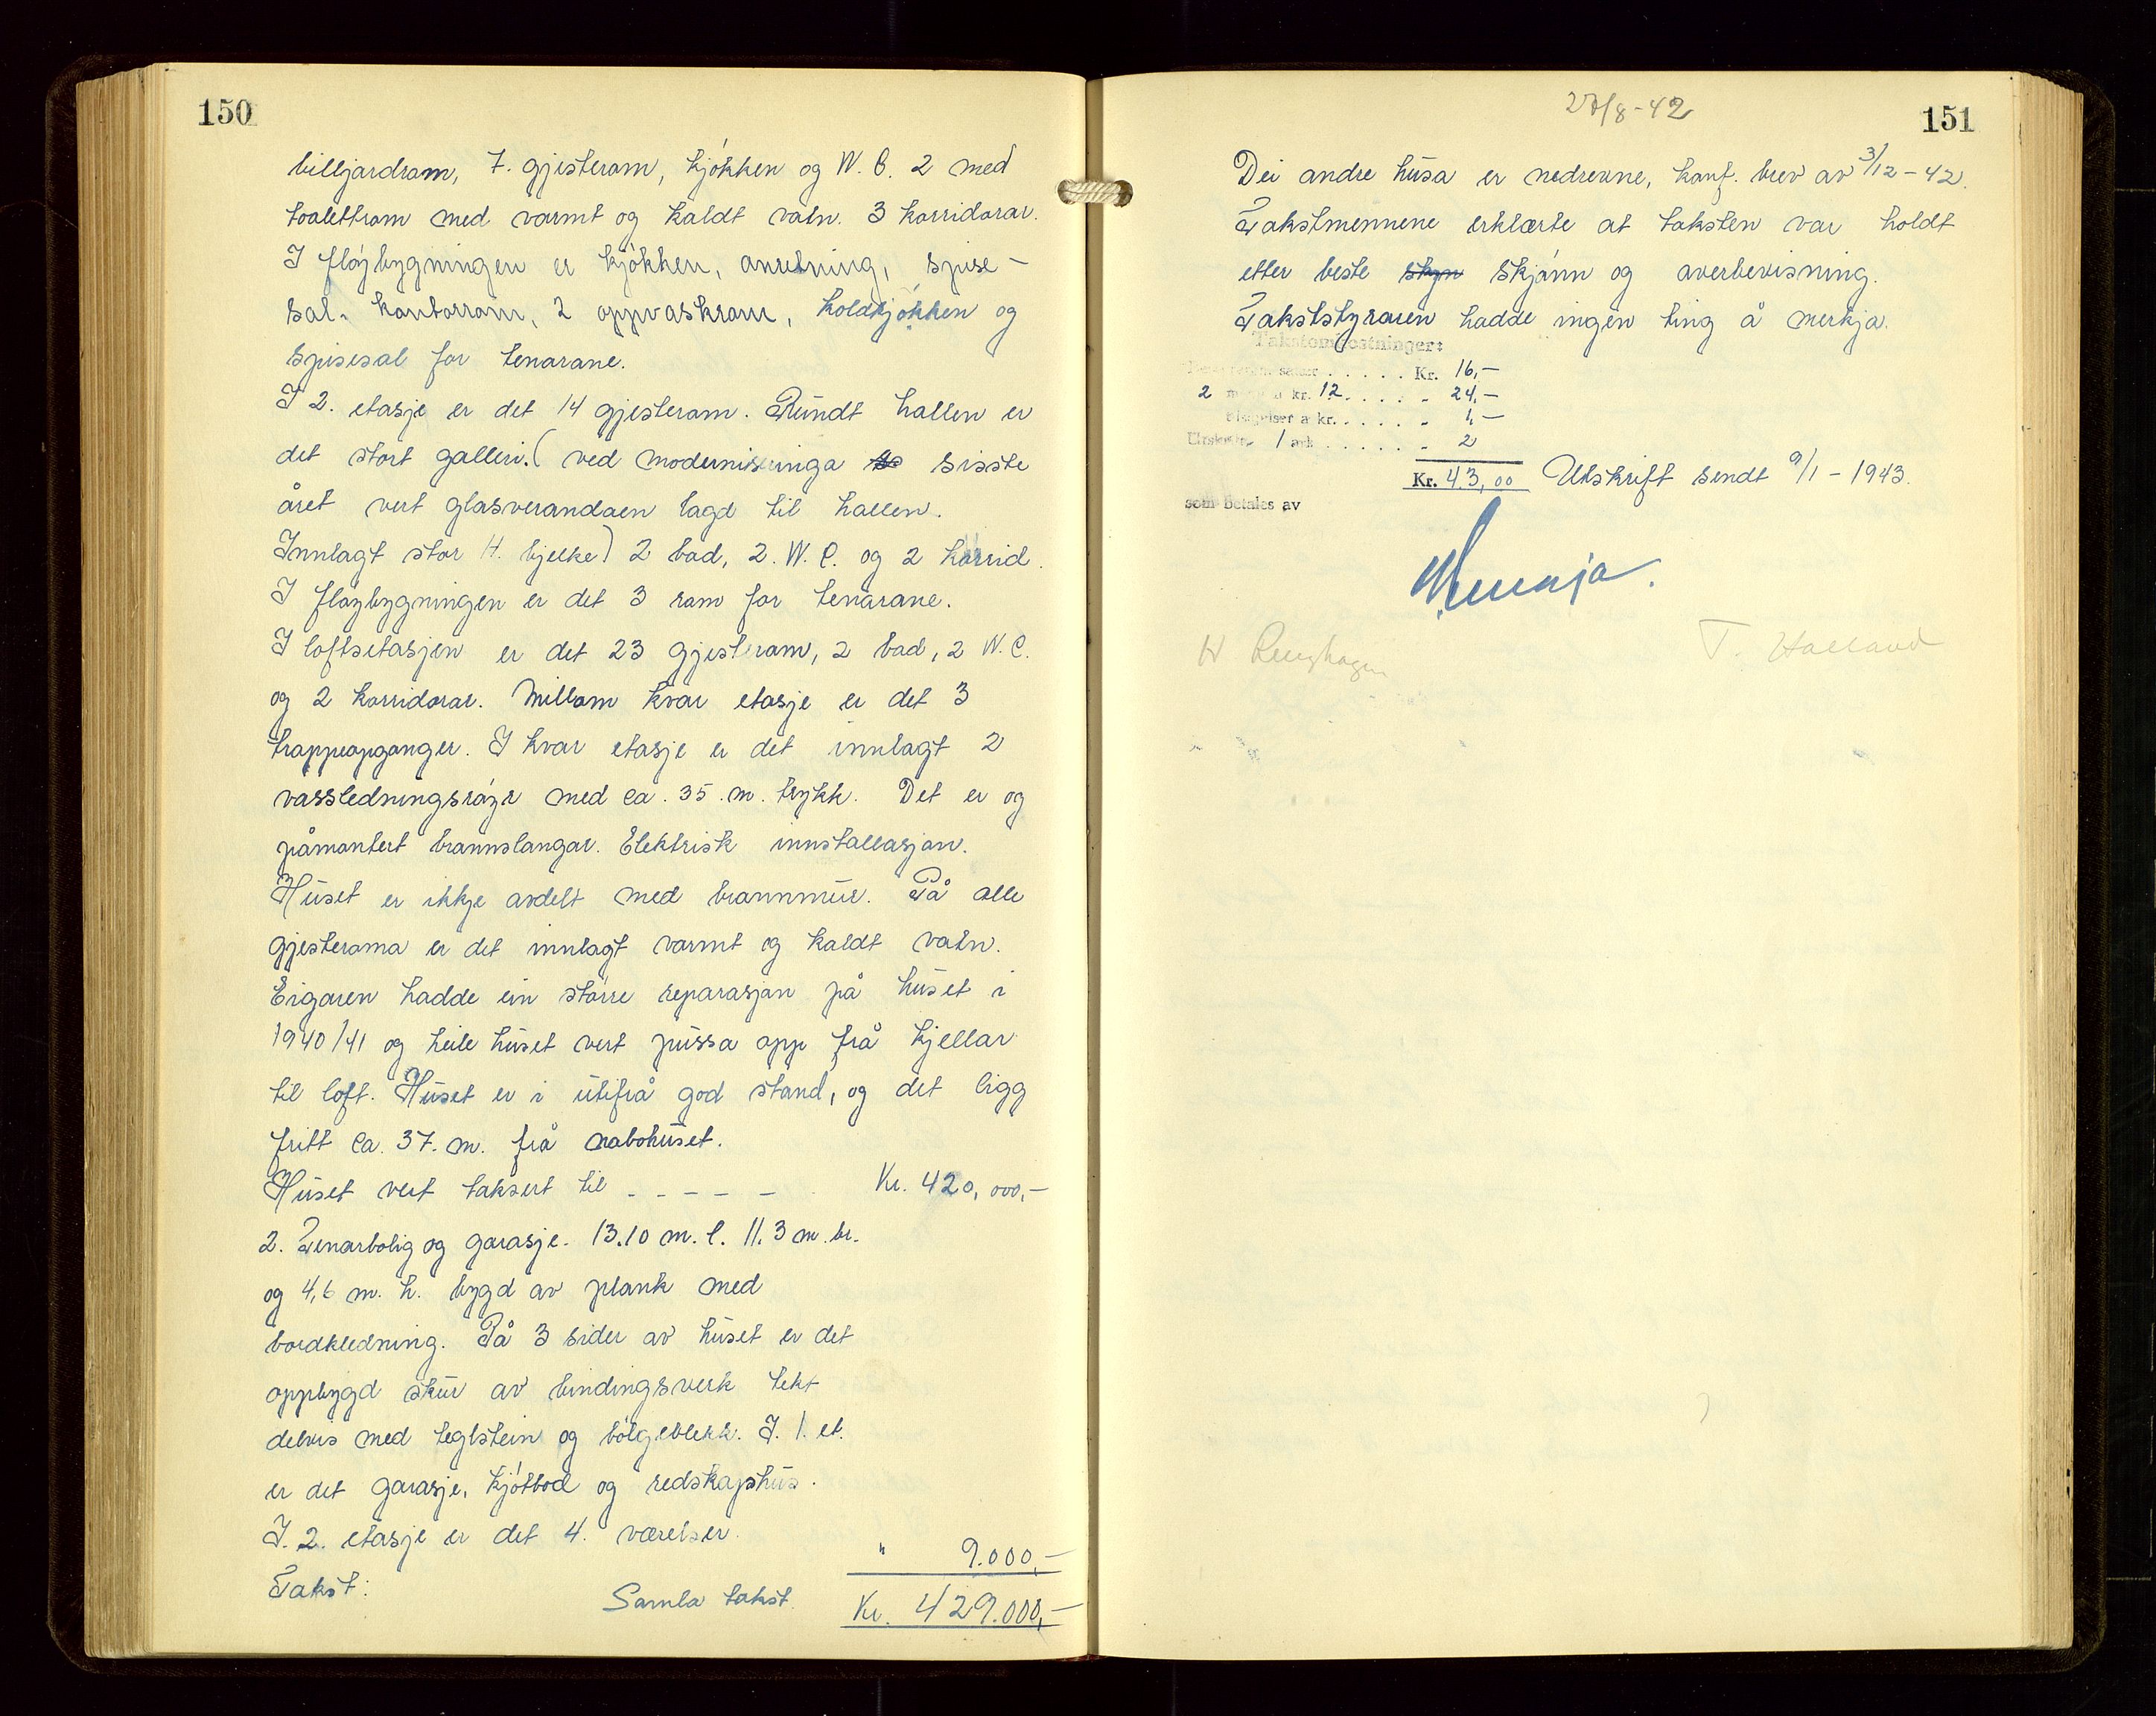 150
billjardrom, 7. gjesterom, kjøkken og W. C. 2 med
toalettrom med varmt og kaldt vatn. 3 korridorar.
I fløybygningen er kjøkken, anretning, spise-
sal. kontorrom, 2 oppvaskrom, koldkjøkken og
spisesal for tenarane.
I 2. etasje er det 14 gjesterom. Rundt hallen er
det stort galleri. (ved moderniseringa siste
året vert glasverandaen lagd til hallen.
Innlagt stor H. bjelke) 2 bad, 2. W. C. og 2 korrid.
I fløybygningen er det 3 rom for tenarane.
I loftsetasjen er det 23 gjesterom, 2 bad, 2 W. C.
og 2 korridorar. Millom kvar etasje er det 3
trappeopganger. I kvar etasje er det innlagt 2
vassledningsrøyr med ca. 35. m. trykk. Det er og
påmontert brannslangar. Elektrisk innstallasjon.
Huset er ikkje avdelt med brannmur. På alle
gjesteroma er det innlagt varmt og kaldt vatn.
Eigaren hadde ein større reparasjon på huset i
1940/41 og heile huset vert pussa opp frå kjellar
til loft. Huset er i utifrå god stand, og det ligg
fritt ca. 37. m. frå nabohuset.
Huset vert taksert til - - - - - Kr. 420,000,-
2. Tenarbolig og garasje. 13.10 m. l. 11.3 m. br.
og 4,6 m. h. bygd av plank med
bordkledning. På 3 sider av huset er det
oppbygd skur av bindingsverk tekt
delvis med teglstein og bølgeblekk. I. 1. et.
er det garasje, kjøtbod og redskapshus.
I. 2. etasje er det 4. værelser.
" 9.000,-
Takst:
Samla takst Kr. 429.000,-
27/8-42
151
Dei andre husa er nedrevne, konf. brev av 3/12-42.
Takstmennene erklærte at taksten var holdt
etter beste skyn skjønn og overbevisning.
Takststyraren hadde ingen ting å merkja.
Takstomkostninger:
Kr. 16,-
2 a kr. 12 . . . . . - 24,-
a kr. . . . . . - 1,-
1 ark . . . . . - 2
Kr. 43,00 Utskrift sendt 9/1-1943.
som betales av
T. Haeland